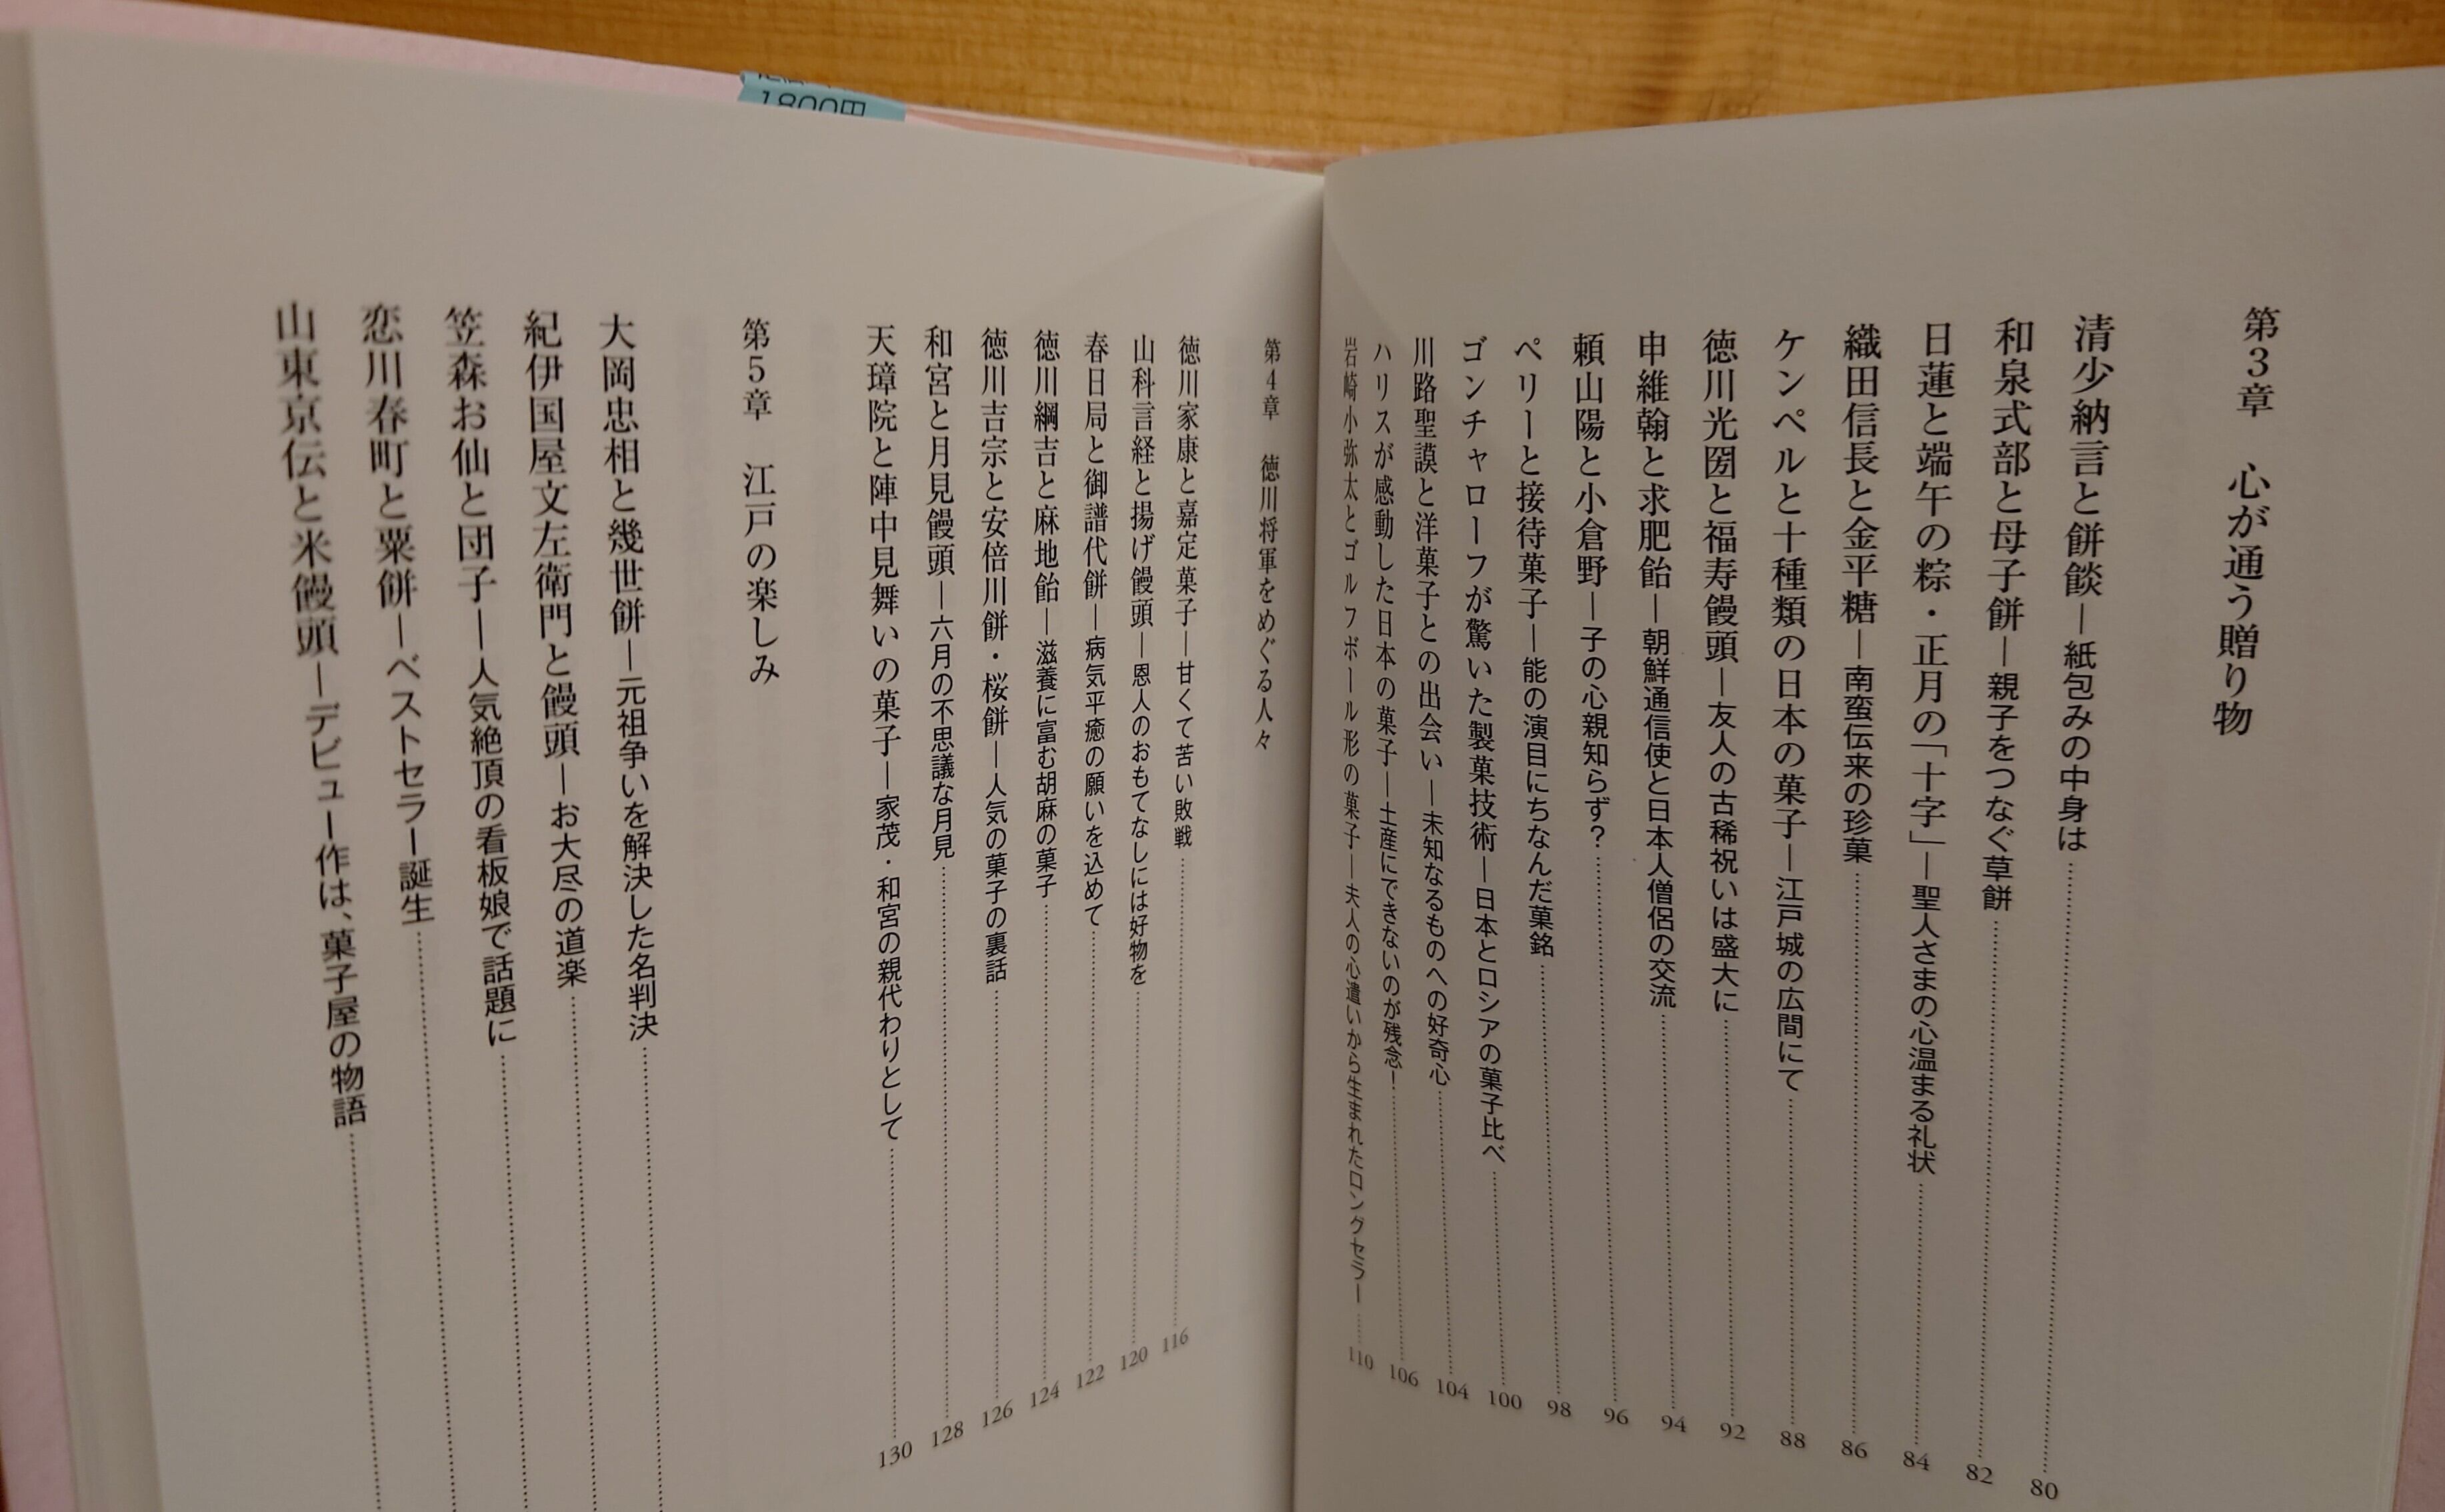 第3章　心が通う贈り物
清少納言と餅餤―紙包みの中身は……80
和泉式部と母子餅―親子をつなぐ草餅……82
日蓮と端午の粽・正月の「十字」―聖人さまの心温まる礼状……84
織田信長と金平糖―南蛮伝来の珍菓……86
ケンペルと十種類の日本の菓子―江戸城の広間にて……88
徳川光圀と福寿饅頭―友人の古稀祝いは盛大に……92
申維翰と求肥飴―朝鮮通信使と日本人僧侶の交流……94
頼山陽と小倉野―子の心親知らず？……96
ペリーと接待菓子―能の演目にちなんだ菓銘……98
ゴンチャローフが驚いた製菓技術―日本とロシアの菓子比べ……100
川路聖謨と洋菓子との出会い―未知なるものへの好奇心……104
ハリスが感動した日本の菓子―土産にできないのが残念！……106
岩崎小弥太とゴルフボール形の菓子―夫人の心遣いから生まれたロングセラー……110
第4章　徳川将軍をめぐる人々
徳川家康と嘉定菓子―甘くて苦い敗戦……116
山科言経と揚げ饅頭―恩人のおもてなしには好物を……120
春日局と御譜代餅―病気平癒の願いを込めて……122
徳川綱吉と麻地飴―滋養に富む胡麻の菓子……124
徳川吉宗と安倍川餅・桜餅―人気の菓子の裏話……126
和宮と月見饅頭―六月の不思議な月見……128
天璋院と陣中見舞いの菓子―家茂・和宮の親代わりとして……130
第5章　江戸の楽しみ
大岡忠相と幾世餅―元祖争いを解決した名判決……
紀伊国屋文左衛門と饅頭―お大尽の道楽……
笠森お仙と団子―人気絶頂の看板娘で話題に……
恋川春町と粟餅―ベストセラー誕生……
山東京伝と米饅頭―デビュー作は、菓子屋の物語……
1800円